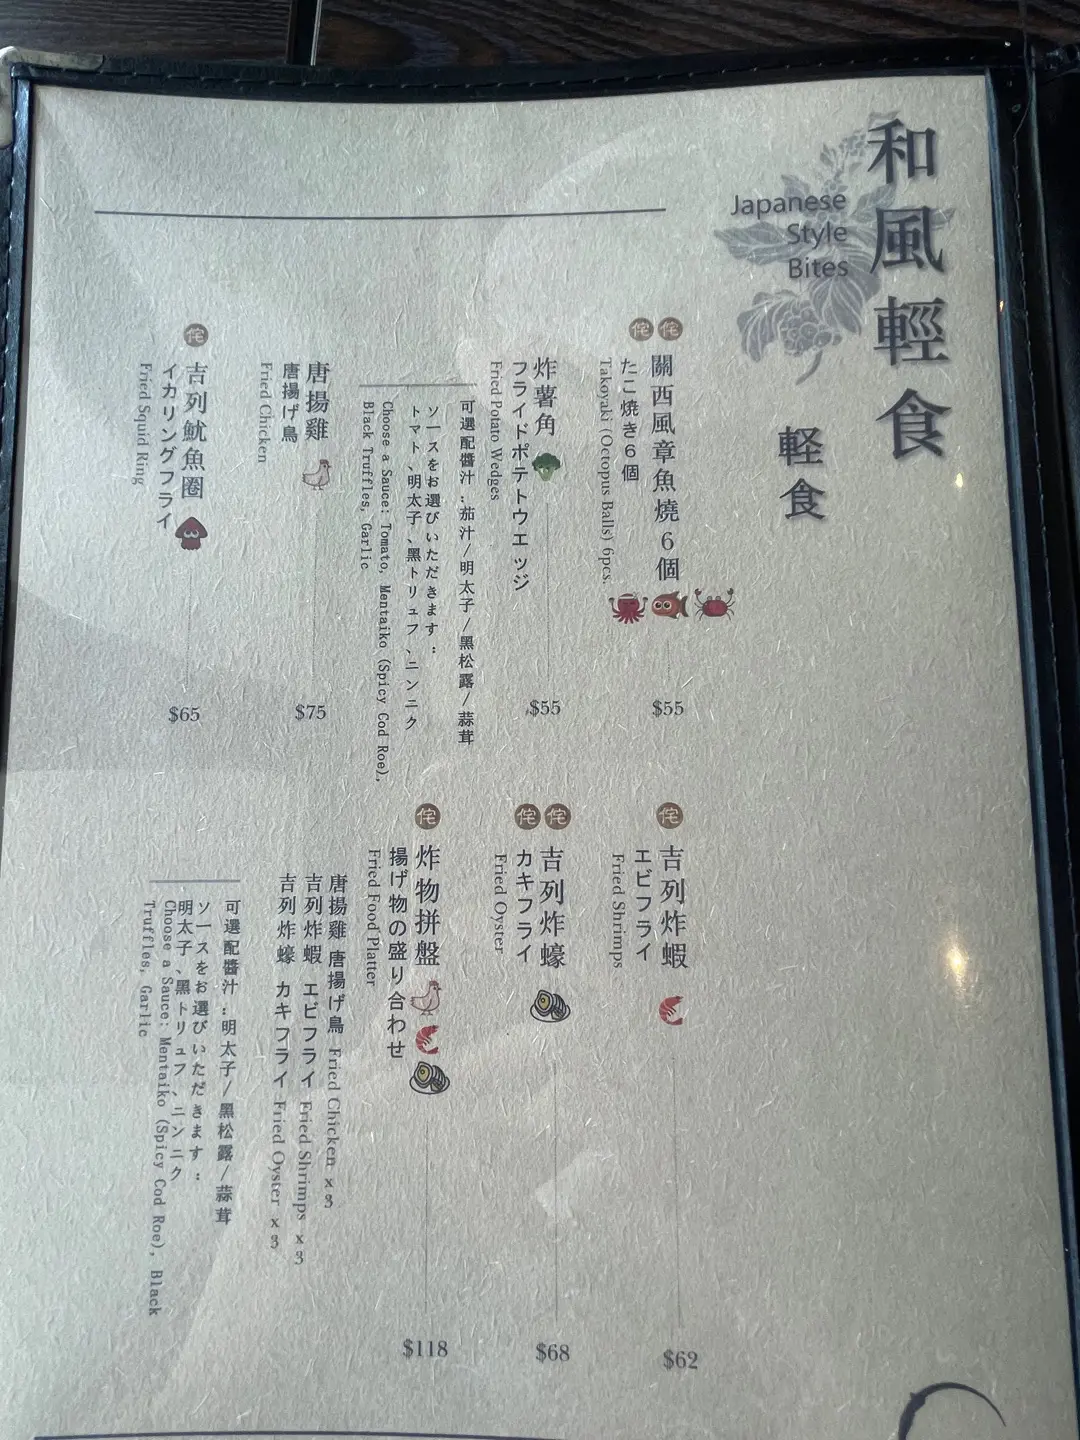 和風輕食
Japanese
Style
Bites
軽食
侘 侘
關西風章魚燒6個
たこ焼き6個
Takoyaki (Octopus Balls) 6pcs.
$55
炸薯角
フライドポテトウエッジ
Fried Potato Wedges
$55
可選配醬汁：茄汁/明太子/黑松露/蒜茸
ソースをお選びいただきます：
トマト、明太子、黒トリュフ、ニンニク
Choose a Sauce: Tomato, Mentaiko (Spicy Cod Roe),
Black Truffles, Garlic
唐揚雞
唐揚げ鳥
Fried Chicken
$75
侘
吉列魷魚圈
イカリングフライ
Fried Squid Ring
$65
侘
吉列炸蝦
エビフライ
Fried Shrimps
$62
侘 侘
吉列炸蠔
カキフライ
Fried Oyster
$68
侘
炸物拼盤
揚げ物の盛り合わせ
Fried Food Platter
$118
唐揚雞 唐揚げ鳥 Fried Chicken x 3
吉列炸蝦 エビフライ Fried Shrimps x 3
吉列炸蠔 カキフライ Fried Oyster x 3
可選配醬汁：明太子/黑松露/蒜茸
ソースをお選びいただきます：
明太子、黒トリュフ、ニンニク
Choose a Sauce: Mentaiko (Spicy Cod Roe), Black
Truffles, Garlic